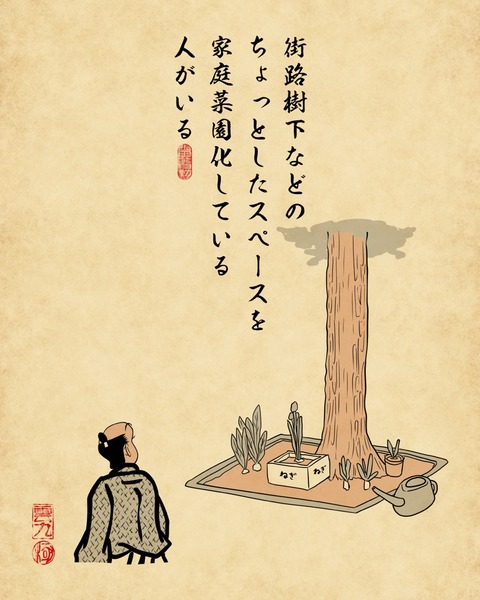 街路樹下などの
ちょっとしたスペースを
家庭菜園化している
人がいる
ねぎ
ねぎ